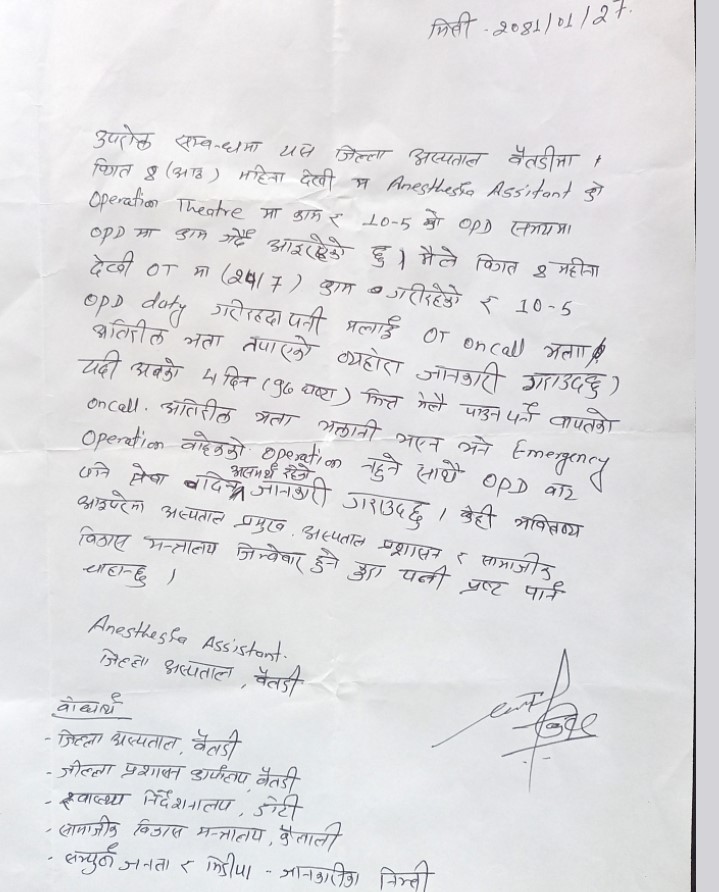 मिती - 2081/01/27.
उपरोक्त सम्बन्धमा यस जिल्ला अस्पताल बैतडीमा
विगत 8 (आठ) महिना देखी म Anesthesia Assistant को
Operation Theatre मा काम र 10-5 को OPD समयमा
OPD मा काम गर्दै आइरहेको छु । मैले विगत 8 महीना
देखी OT मा (24/7) काम गरीरहेको र 10-5
OPD duty गरीरहदा पनी मलाई OT oncall भत्ता
अतिरीक्त भत्ता नपाएको व्यहोरा जानकारी गराउदछु)
यदी अबको 4 दिन (96 घण्टा) भित्र मैले पाउन पर्ने वापतको
oncall. अतिरीक्त भत्ता भुक्तानी भएन भने Emergency
Operation बाहेकको operation नहुने साथै OPD बाट
सेवा दिन असमर्थ रहेको जानकारी गराउदछु । केही भवितव्य
आइपरेमा अस्पताल प्रमुख. अस्पताल प्रशासन र सामाजीक
विकास मन्त्रालय जिम्वेवार हुने कुरा पनी प्रष्ट पार्न
चाहान्छु ।
Anesthesia Assistant.
जिल्ला अस्पताल, बैतडी
बोधार्थ
- जिल्ला अस्पताल, बैतडी
- जील्ला प्रशासन कार्यालय, बैतडी
- स्वास्थ्य निर्देशनालय, डोटी
- सामाजीक विकास मन्त्रालय, कैलाली
- सम्पुर्ण जनता र मिडीया - जानकारीका निम्ती